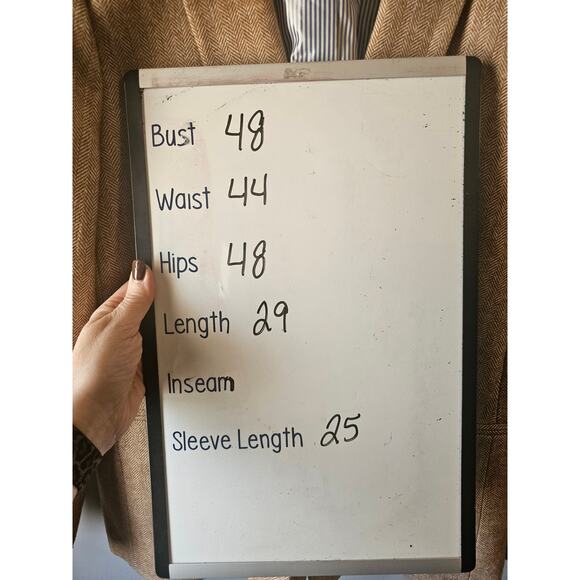 Bust 48
Waist 44
Hips 48
Length 29
Inseam
Sleeve Length 25